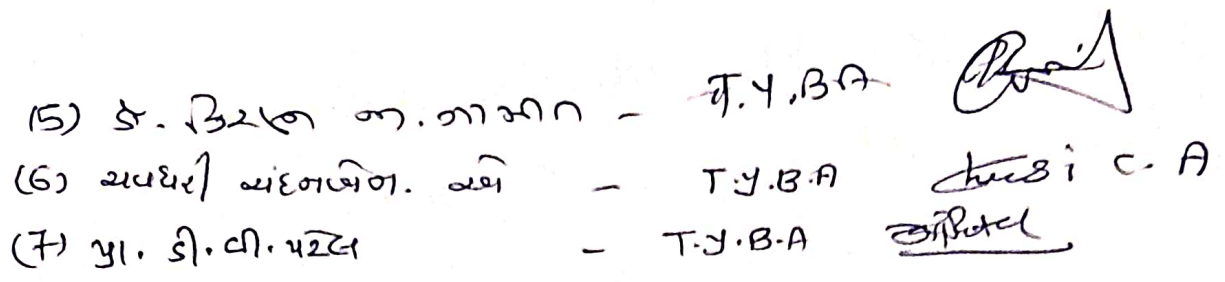 (5) ડો. કિરણ જી. ગામીત - T.Y.BA
(6) ચવધરી ચંદનબેન. એ - T.Y.B.A C. A
(7) પ્રા. ડી. વી. પટેલ - T.Y.B.A